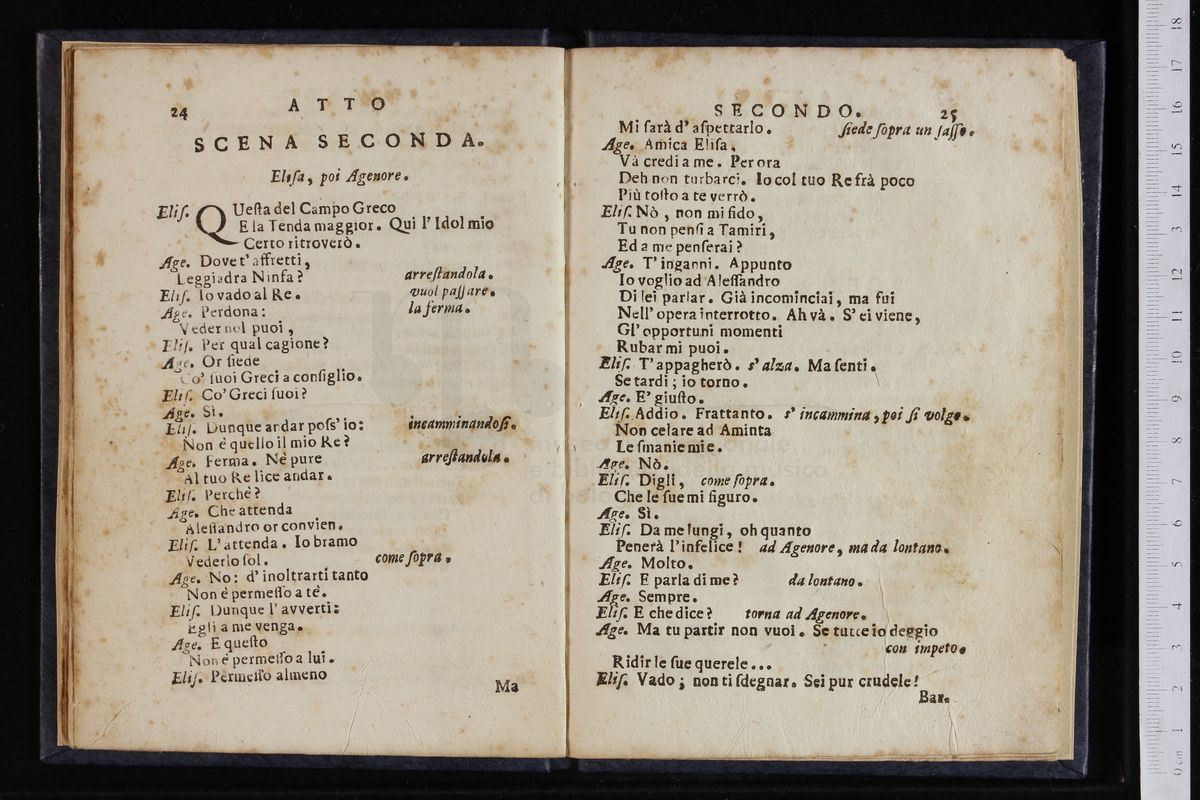 24
ATTO
SCENA SECONDA.
Elisa, poi Agenore.
Elis. QUesta del Campo Greco
E la Tenda maggior. Qui l' Idol mio
Certo ritroverò.
Age. Dove t' affretti,
Leggiadra Ninfa? arrestandola.
Elis. Io vado al Re. vuol passare.
Age. Perdona: la ferma.
Veder nol puoi,
Elis. Per qual cagione?
Age. Or siede
Co' suoi Greci a consiglio.
Elis. Co' Greci suoi?
Age. Sì.
Elis. Dunque andar poss' io: incamminandosi.
Non è quello il mio Re?
Age. Ferma. Nè pure arrestandola.
Al tuo Re lice andar.
Elis. Perchè?
Age. Che attenda
Alessandro or convien.
Elis. L' attenda. Io bramo
Vederlo sol. come sopra.
Age. No: d' inoltrarti tanto
Non è permesso a te.
Elis. Dunque l' avverti:
Egli a me venga.
Age. E questo
Non è permesso a lui.
Elis. Permesso almeno
Ma
SECONDO. 25
Mi sarà d' aspettarlo. siede sopra un sasso.
Age. Amica Elisa,
Và credi a me. Per ora
Deh non turbarci. Io col tuo Re frà poco
Più tosto a te verrò.
Elis. Nò, non mi fido,
Tu non pensi a Tamiri,
Ed a me penserai?
Age. T' inganni. Appunto
Io voglio ad Alessandro
Di lei parlar. Già incominciai, ma fui
Nell' opera interrotto. Ah và. S' ei viene,
Gl' opportuni momenti
Rubar mi puoi.
Elis. T' appagherò. s' alza. Ma senti.
Se tardi; io torno.
Age. E' giusto.
Elis. Addio. Frattanto. s' incammina, poi si volge.
Non celare ad Aminta
Le smanie mie.
Age. Nò.
Elis. Digli, come sopra.
Che le sue mi figuro.
Age. Sì.
Elis. Da me lungi, oh quanto
Penerà l' infelice! ad Agenore, ma da lontano.
Age. Molto.
Elis. E parla di me? da lontano.
Age. Sempre.
Elis. E che dice? torna ad Agenore.
Age. Ma tu partir non vuoi. Se tutte io deggio
con impeto.
Ridir le sue querele...
Elis. Vado; non ti sdegnar. Sei pur crudele!
Bar.